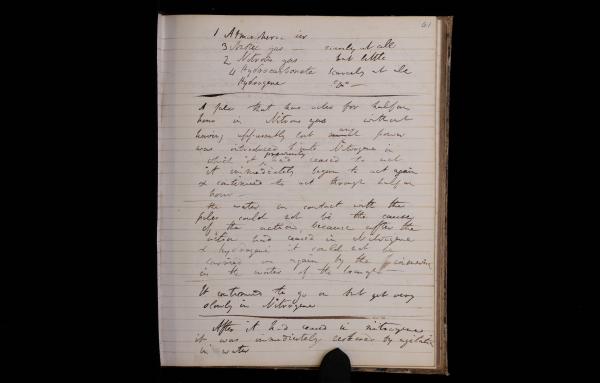 61
1 Atmospheric air
3 Azotic gas — scarcely at all
2 Nitrous gas but little
4 Hydrocarbonate scarcely at all
Hydrogene "Do" —
A pile that has acted for half an
hour in Nitrous gas without
having apparently lost any power
was introduced into Nitrogene in
which it had previously ceased to act
it immediately began to act again
& continued to act through half an
hour —
the water in contact with the
piles could not be the cause
of the action, because after the
action had ceased in Nitrogene
& hydrogene it could not be
carried on again by the
in the water of the trough —
It continued to go on but yet very
slowly in Nitrogene
After it had ceased in nitrogene
it was immediately restored by agitation
in water